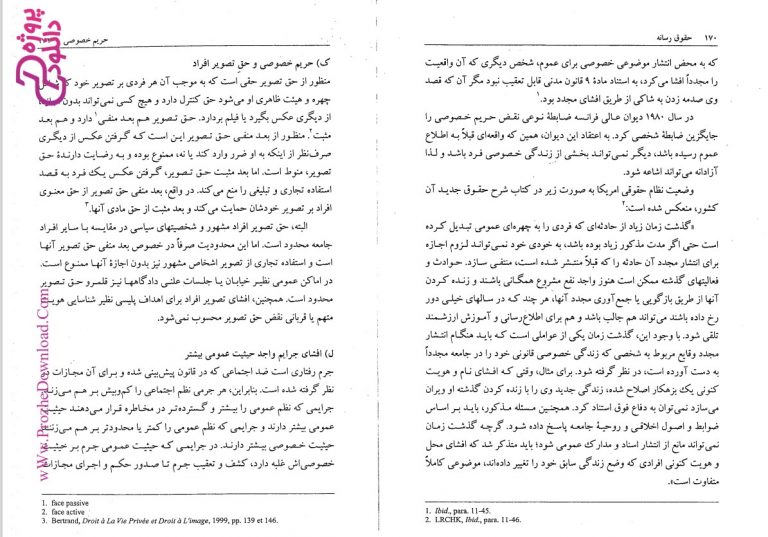 ۱۷۰ حقوق رسانه
که به محض انتشار موضوعی خصوصی برای عموم، شخص دیگری که آن واقعیت
را مجدداً افشا می‌کرد، به استناد مادهٔ ۹ قانون مدنی قابل تعقیب نبود مگر آن که قصد
وی صدمه زدن به شاکی از طریق افشای مجدد بود.۱
در سال ۱۹۸۰ دیوان عالی فرانسه ضابطهٔ نوعی نقض حریم خصوصی را
جایگزین ضابطهٔ شخصی کرد. به اعتقاد این دیوان، همین که واقعه‌ای قبلاً به اطلاع
عموم رسیده باشد، دیگر نمی‌تواند بخشی از زندگی خصوصی فرد باشد و لذا
آزادانه می‌تواند اشاعه شود.
وضعیت نظام حقوقی امریکا به صورت زیر در کتاب شرح حقوق جدید آن
کشور، منعکس شده است:۲
«گذشت زمان زیاد از حادثه‌ای که فردی را به چهره‌ای عمومی تبدیل کرده
است حتی اگر مدت مذکور زیاد بوده باشد، به خودی خود نمی‌تواند لزوم اجازه
برای انتشار مجدد آن حادثه را که قبلاً منتشر شده است، منتفی سازد. حوادث و
فعالیتهای گذشته ممکن است هنوز واجد نفع مشروع همگانی باشند و زنده کردن
آنها از طریق بازگویی یا جمع‌آوری مجدد آنها، هر چند که در سالهای خیلی دور
رخ داده باشند می‌تواند هم جالب باشد و هم برای اطلاع‌رسانی و آموزش ارزشمند
تلقی شود. با وجود این، گذشت زمان یکی از عواملی است که باید هنگام انتشار
مجدد وقایع مربوط به شخصی که زندگی خصوصی قانونی خود را در جامعه مجدداً
به دست آورده است، در نظر گرفته شود. برای مثال، وقتی که افشای نام و هویت
کنونی یک بزهکار اصلاح شده، زندگی جدید وی را با زنده کردن گذشته او ویران
می‌سازد نمی‌توان به دفاع فوق استناد کرد. همچنین مسئله مذکور، باید بر اساس
ضوابط و اصول اخلاقی و روحیهٔ جامعه پاسخ داده شود. گرچه گذشت زمان
نمی‌تواند مانع از انتشار اسناد و مدارک عمومی شود؛ باید متذکر شد که افشای محل
و هویت کنونی افرادی که وضع زندگی سابق خود را تغییر داده‌اند، موضوعی کاملاً
متفاوت است».
1. Ibid., para. 11-45.
2. LRCHK, Ibid., para. 11-46.
حریم خصوصی
ک) حریم خصوصی و حق تصویر افراد
منظور از حق تصویر حقی است که به موجب آن هر فردی بر تصویر خود
چهره و هیئت ظاهری او می‌شود حق کنترل دارد و هیچ کسی نمی‌تواند بدون
از دیگری عکس بگیرد یا فیلم بردارد. حق تصویر هم بعد منفی۱ دارد و هم بعد
مثبت۲. منظور از بعد منفی حق تصویر این است که گرفتن عکس از دیگری
صرف‌نظر از اینکه به او ضرر وارد کند یا نه، ممنوع بوده و به رضایت دارندهٔ حق
تصویر، منوط است. اما بعد مثبت حق تصویر، گرفتن عکس یک فرد به قصد
استفاده تجاری و تبلیغی را منع می‌کند. در واقع، بعد منفی حق تصویر از حق معنوی
افراد بر تصویر خودشان حمایت می‌کند و بعد مثبت از حق مادی آنها.۳
البته، حق تصویر افراد مشهور و شخصیتهای سیاسی در مقایسه با سایر افراد
جامعه محدود است. اما این محدودیت صرفاً در خصوص بعد منفی حق تصویر آنها
است و استفاده تجاری از تصویر اشخاص مشهور نیز بدون اجازهٔ آنها ممنوع است.
در اماکن عمومی نظیر خیابان یا جلسات علنی دادگاهها نیز قلمرو حق تصویر
محدود است. همچنین، افشای تصویر افراد برای اهداف پلیسی نظیر شناسایی هویت
متهم یا قربانی نقض حق تصویر محسوب نمی‌شود.
ل) افشای جرایم واجد حیثیت عمومی بیشتر
جرم رفتاری است ضد اجتماعی که در قانون پیش‌بینی شده و برای آن مجازات
نظر گرفته شده است. بنابراین، هر جرمی نظم اجتماعی را کم‌وبیش بر هم می‌زند.
جرایمی که نظم عمومی را بیشتر و گسترده‌تر در مخاطره قرار می‌دهند حیثیت
عمومی بیشتر دارند و جرایمی که نظم عمومی را کمتر یا محدودتر بر هم می‌زنند
حیثیت خصوصی بیشتر دارند. در جرایمی که حیثیت عمومی جرم بر حیثیت
خصوصی‌اش غلبه دارد، کشف و تعقیب جرم تا صدور حکم و اجرای مجازات
1. face passive
2. face active
3. Bertrand, Droit à La Vie Privée et Droit à L'image, 1999, pp. 139 et 146.
پروژه
دانلود
www.ProzheDownload.Com